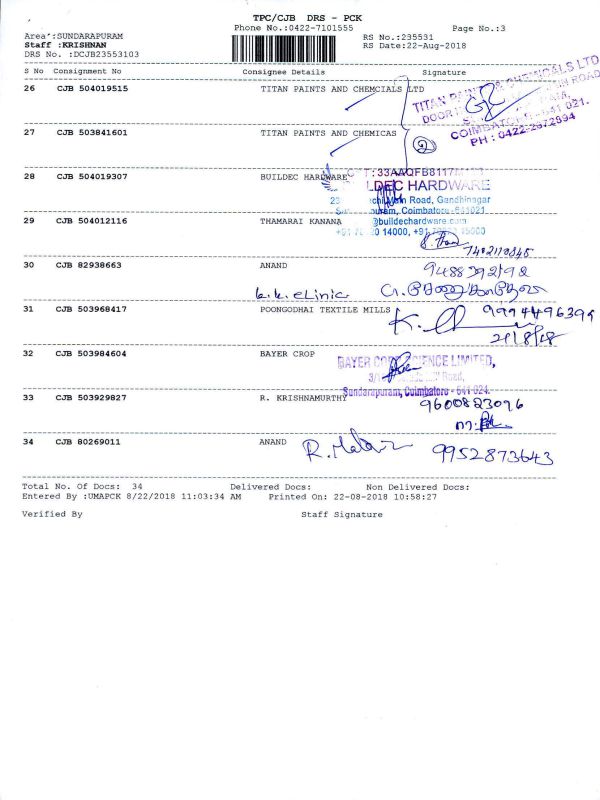 TPC/CJB DRS - PCK
Phone No.:0422-7101555 Page No.:3
Area :SUNDARAPURAM
RS No.:235531
Staff :KRISHNAN
RS Date:22-Aug-2018
DRS No. :DCJB23553103
S No Consignment No Consignee Details Signature
26 CJB 504019515 TITAN PAINTS AND CHEMCIALS LTD
TITAN PAINTS & CHEMICALS LTD
COIMBATORE - 641 021.
PH : 0422-2672994
27 CJB 503841601 TITAN PAINTS AND CHEMICAS
2
28 CJB 504019307 BUILDEC HARDWARE
:33AAQFB8117M
LDEC HARDWARE
Main Road, Gandhinagar
puram, Coimbatore - 641021
@buildechardware.com
29 CJB 504012116 THAMARAI KANANA
20 14000, +91
30 CJB 82938663 ANAND
9488392192
K.K. clinic
31 CJB 503968417 POONGODHAI TEXTILE MILLS
9994496394
21/8/18
32 CJB 503984604 BAYER CROP
BAYER CROP SCIENCE LIMITED,
Road,
Sundarapuram, Coimbatore - 641 024.
33 CJB 503929827 R. KRISHNAMURTHY
9600823096
34 CJB 80269011 ANAND
9952873643
Total No. Of Docs: 34 Delivered Docs: Non Delivered Docs:
Entered By :UMAPCK 8/22/2018 11:03:34 AM Printed On: 22-08-2018 10:58:27
Verified By Staff Signature